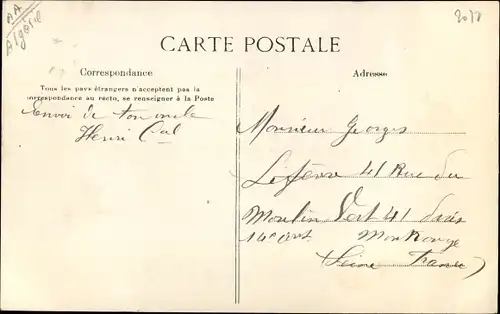 AA
Algérie
2078
CARTE POSTALE
Correspondance
Tous les pays étrangers n'acceptent pas la
correspondance au recto, se renseigner à la Poste
Envoi de ton oncle
Henri Cal
Adresse
Monsieur Georges
Lefèvre 41 Rue du
Moulin Vert 41 Paris
14e arrt Montrouge
(Seine France)